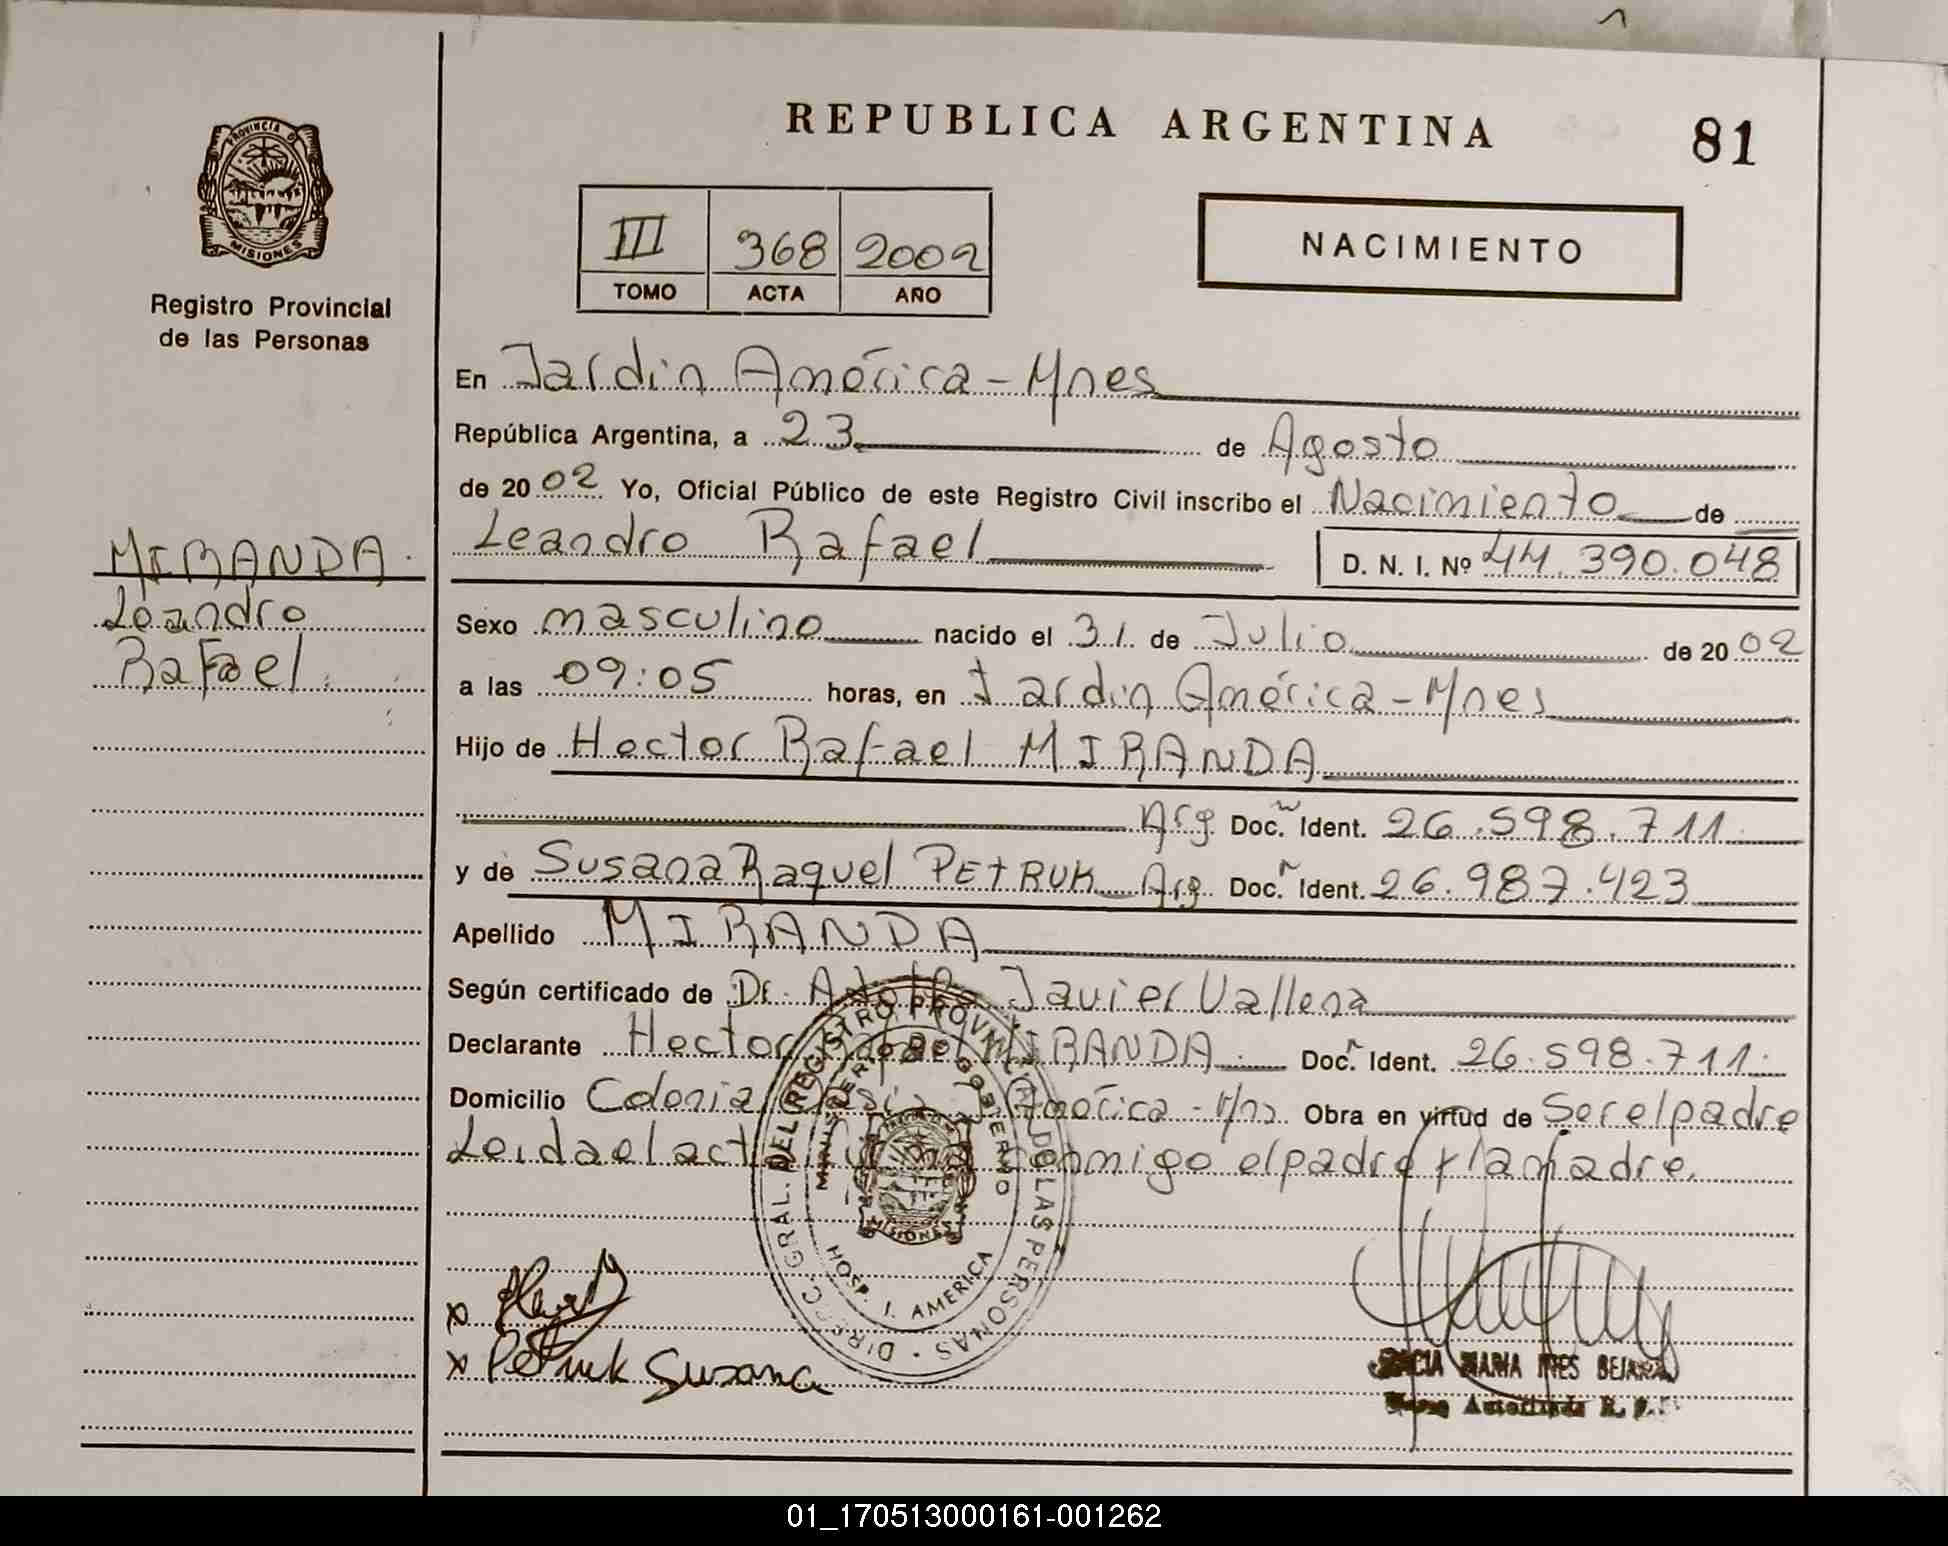 REPUBLICA ARGENTINA
81
PROVINCIA DE
MISIONES
Registro Provincial
de las Personas
III 368 2002
TOMO ACTA AÑO
NACIMIENTO
En Jardin América - Mnes
República Argentina, a 23 de Agosto
de 20 02 Yo, Oficial Público de este Registro Civil inscribo el Nacimiento de
Leandro Rafael D. N. I. Nº 44.390.048
MIRANDA.
Leandro
Rafael
Sexo masculino nacido el 31 de Julio de 20 02
a las 09:05 horas, en Jardin América - Mnes
Hijo de Hector Rafael MIRANDA
Arg Doc. Ident. 26.598.711
y de Susana Raquel PETRUK Arg Doc. Ident. 26.987.423
Apellido MIRANDA
Según certificado de Dr. Adolfo Javier Vallena
Declarante Hector Rafael MIRANDA Doc. Ident. 26.598.711
Domicilio Colonia América - Mnes Obra en virtud de Ser el padre
Leida el acta conmigo el padre y la madre.
DIRECC. GRAL. DEL REGISTRO PROVINCIAL DE LAS PERSONAS
MINISTERIO DE GOBIERNO
MISIONES
HOSP. J. AMERICA
x
x Petruk Susana
MARIA INES
01_170513000161-001262